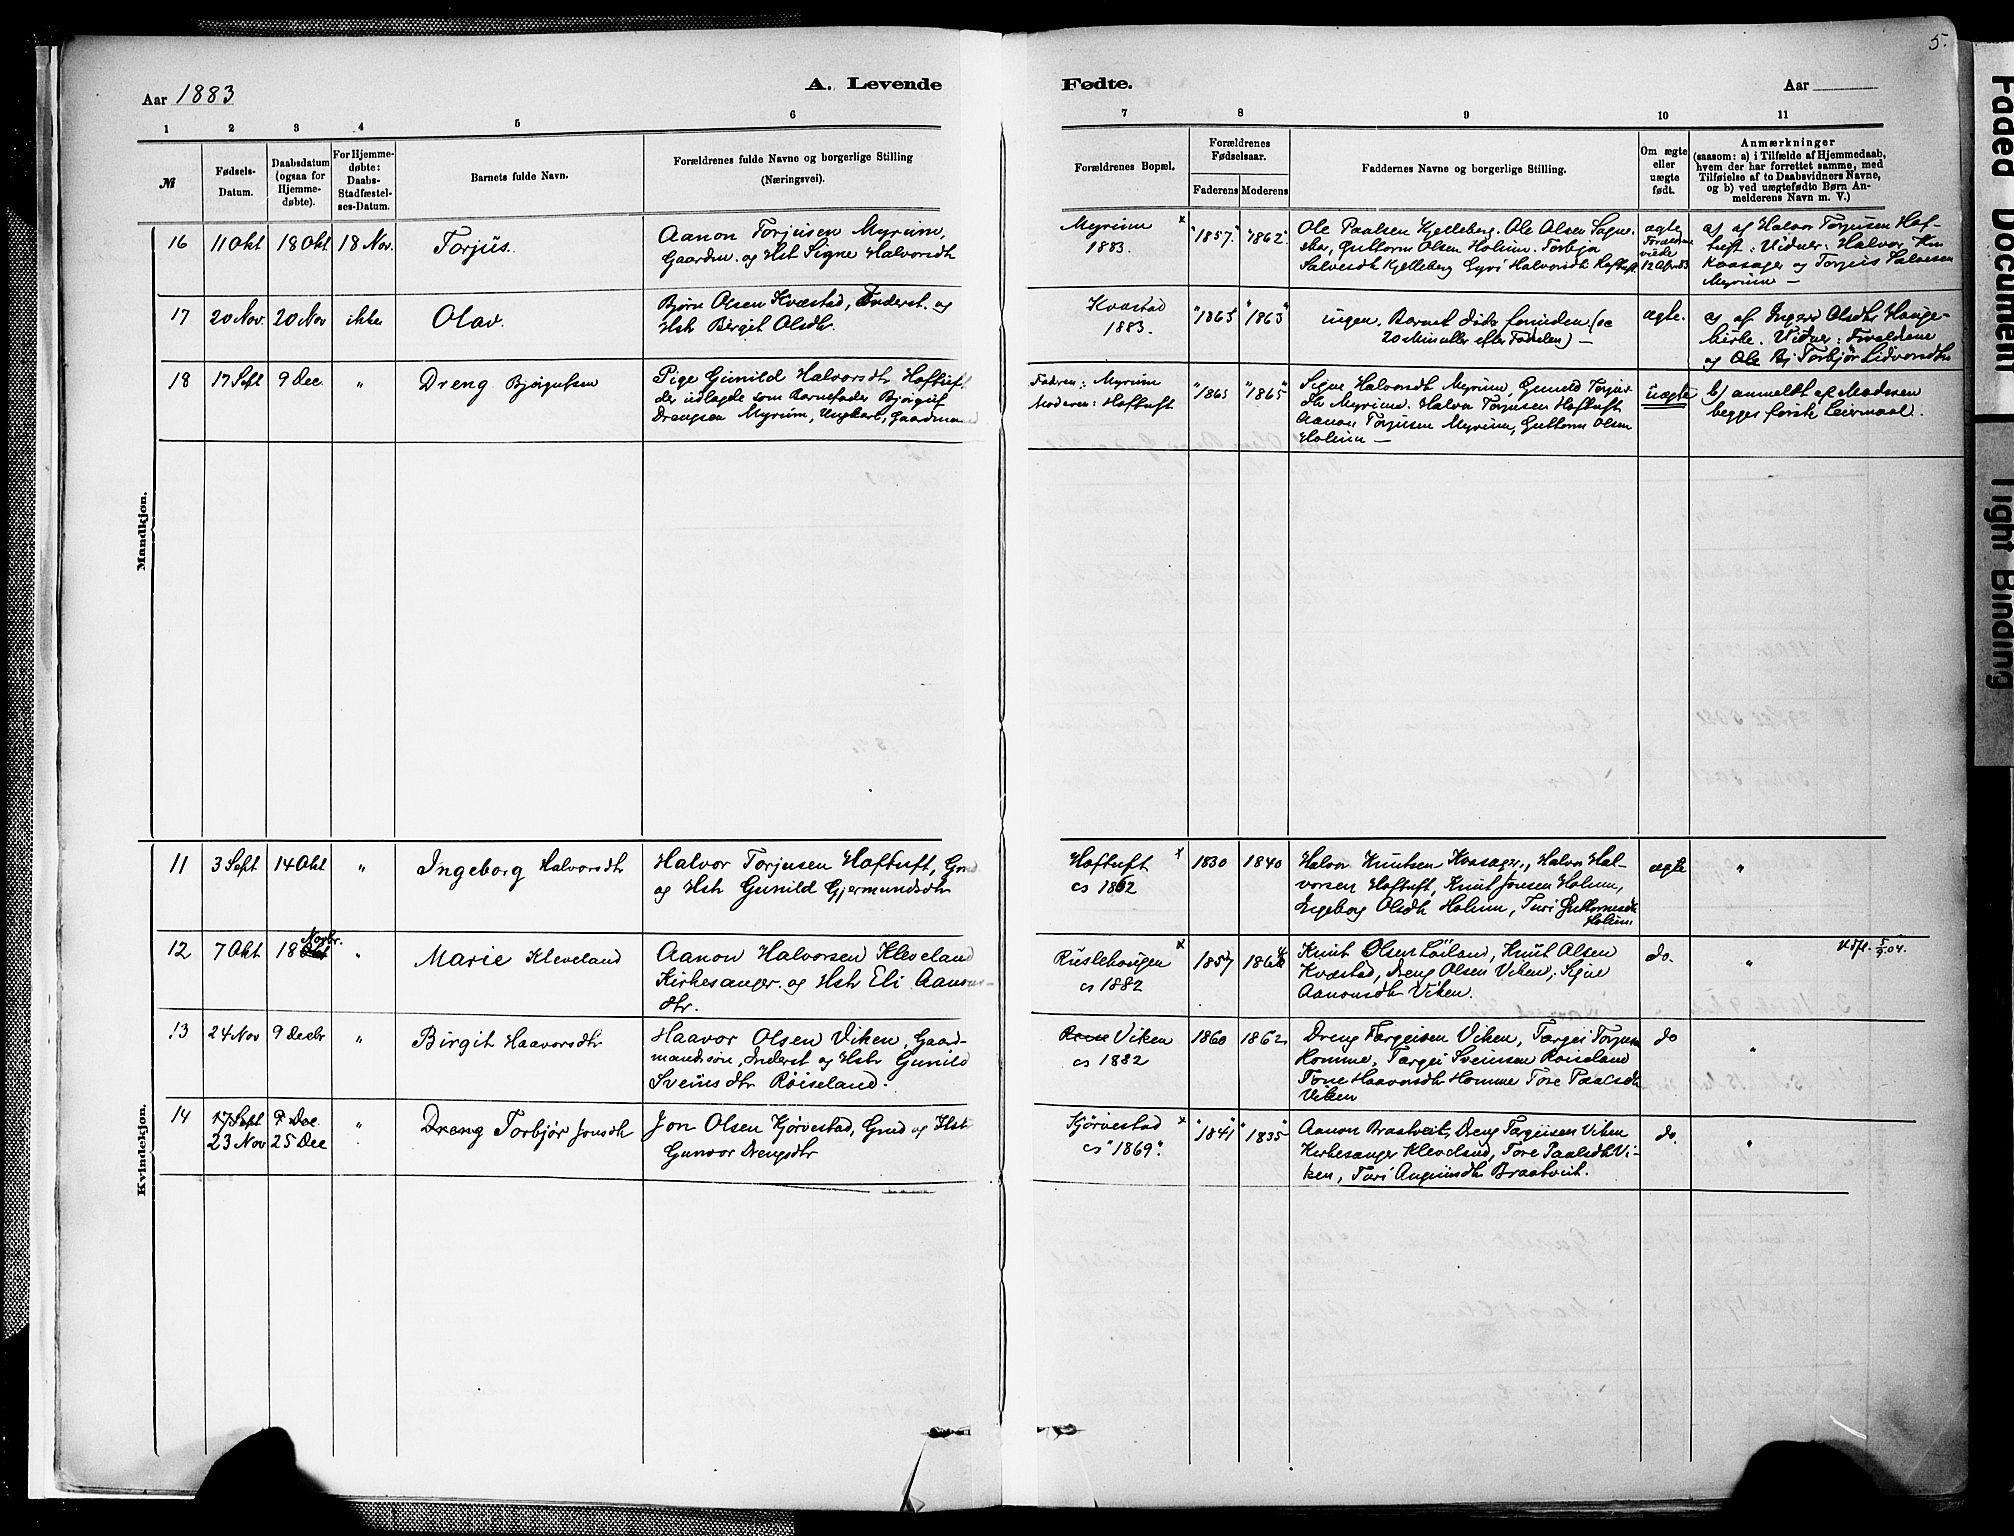 5.
Aar 1883
A. Levende
Fødte.
Aar
1 2 3 4 5 6 7 8 9 10 11
№
Fødsels-
Datum.
Daabsdatum
(ogsaa for
Hjemme-
døbte).
For Hjemme-
døbte:
Daabs-
Stadfæstel-
ses-Datum.
Barnets fulde Navn.
Forældrenes fulde Navne og borgerlige Stilling
(Næringsvei).
Forældrenes Bopæl.
Forældrenes
Fødselsaar.
Faderens Moderens
Faddernes Navne og borgerlige Stilling.
Om ægte
eller
uægte
født.
Anmærkninger
(saasom: a) i Tilfælde af Hjemmedaab,
hvem der har forrettet samme, med
Tilføielse af to Daabsvidners Navne,
og b) ved uægtefødte Børn An-
melderens Navn m. V.)
Mandkjøn.
16 11 Okt 18 Okt 18 Nov. Torjus.
Aanon Torjusen Myrum,
Gaardm. og Hst Signe Halvorsdtr
Myrum x
1883.
"1857." "1862"
Ole Paalsen Kjelleberg. Ole Olsen
Guttorm Olsen Holum. Torbjør
Salvesdtr Kjelleberg Gyri Halvorsdtr Hoftuft
ægte
viede
12 Apr 83
a) af Halvor Torjusen Hof-
tuft: Vidner: Halvor
Kaasager og Torjus Salvesen
Myrum —
17 20 Nov. 20 Nov ikke Olav.
Bjørn Olsen Kvæstad, Inderst. og
Hst Bergit Olsdtr.
Kvæstad
1883.
"1863" "1863"
ingen. Barnet døde forinden (ca
20 Minutter efter Fødselen) —
ægte.
a) af Inger Olsdtr Hauge-
Vidner: Forældrene
og Ole Bj Torbjør Lidvorsdtr
18 17 Sept 9 Dec. " Dreng Bjørgufsen
Pige Gunild Halvorsdtr Hoftuft
der udlagde som Barnefader Bjørguf
Drengsen Myrum, Ungkarl, Gaardmand
Fadren: Myrum
Moderen: Hoftuft
"1863 "1865"
Signe Halvorsdtr Myrum, Gunild Torjus-
dtr Myrum. Halvor Torjusen Hoftuft
Aanon Torjusen Myrum, Guttorm Olsen
Holum —
uægte
b) anmeldt af Moderen
begges første Leiermaal.
Kvindekjøn.
11 3 Sept 14 Okt " Ingeborg Halvorsdtr
Halvor Torjusen Hoftuft,
og Hst Gunild Gjermundsdtr
Hoftuft x
cs 1862
1830 1840
Halvor Knutsen Kaasager, Halvor Hal-
vorsen Hoftuft, Knut Jonsen Holum,
Ingeborg Olsdtr Holum, Turi Guttormsdtr
Holum
ægte "
12 7 Okt 18 Novbr. Okt " Marie Kleveland
Aanon Halvorsen Kleveland
Kirkesanger. og Hst Eli Aanons-
dtr.
Ruslehougen x
cs 1882
1857
Knut Olsen Løiland, Knut Olsen
Kvæstad, Dreng Olsen Viken, Signe
Aanonsdtr Viken.
do. "
13 24 Nov 9 Decbr " Birgit Haavorsdtr
Haavor Olsen Viken, Gaard-
mandssøn, Inderst og Hst Gunild
Sveinsdtr Røiseland.
Viken
cs 1882
1860 1862
Dreng Targeisen Viken, Targei Torjusen
Homme, Targei Sveinsen Røiseland
Tone Haavorsdtr Homme Tore Paalsdtr
Viken
do "
14 17 Sept 9 Dec
23 Nov 25 Dec " Dreng Torbjør Jonsdtr
Jon Olsen Kjørvestad, Gmd og Hst
Gunvor Drengsdtr
Kjørvestad x
cs "1869".
"1841" "1835"
Aanon Braatveit, Dreng Targeisen Viken
Kirkesanger Kleveland, Tore Paalsdtr Vi-
ken, Turi Braatveit.
do. "
Faded Document
Tight Binding